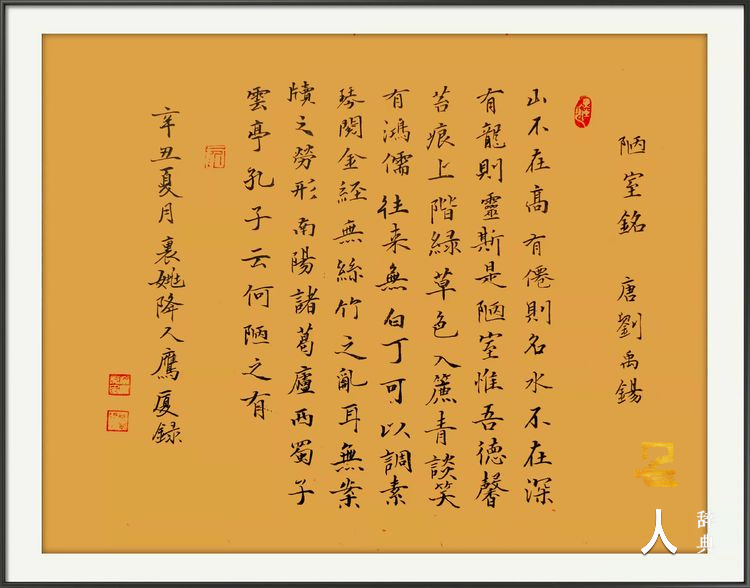 陋室銘 唐劉禹錫
山不在高有僊則名水不在深
有龍則靈斯是陋室惟吾德馨
苔痕上階緑草色入簾青談笑
有鴻儒往来無白丁可以調素
琴閱金経無絲竹之亂耳無案
牘之勞形南陽諸葛廬西蜀子
雲亭孔子云何陋之有
辛丑夏月降人鷹厦録
人
辞典